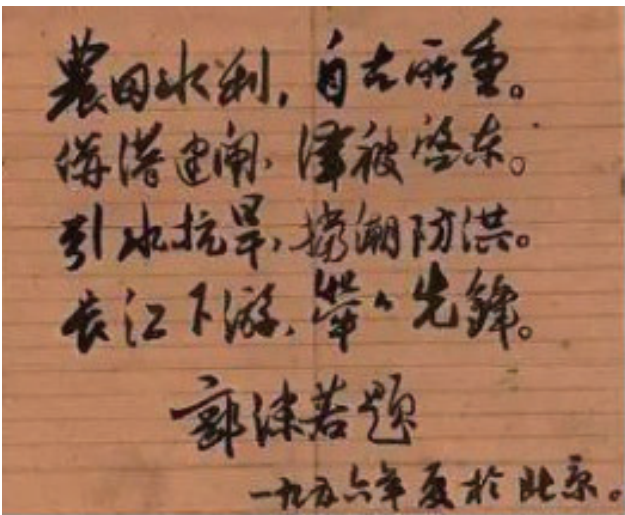 農田水利，自古所重。
傋港建闸，澤被啓东。
引水抗旱，挡潮防洪。
长江下游，犖々先鋒。
郭沫若題
一九五六年夏於北京。